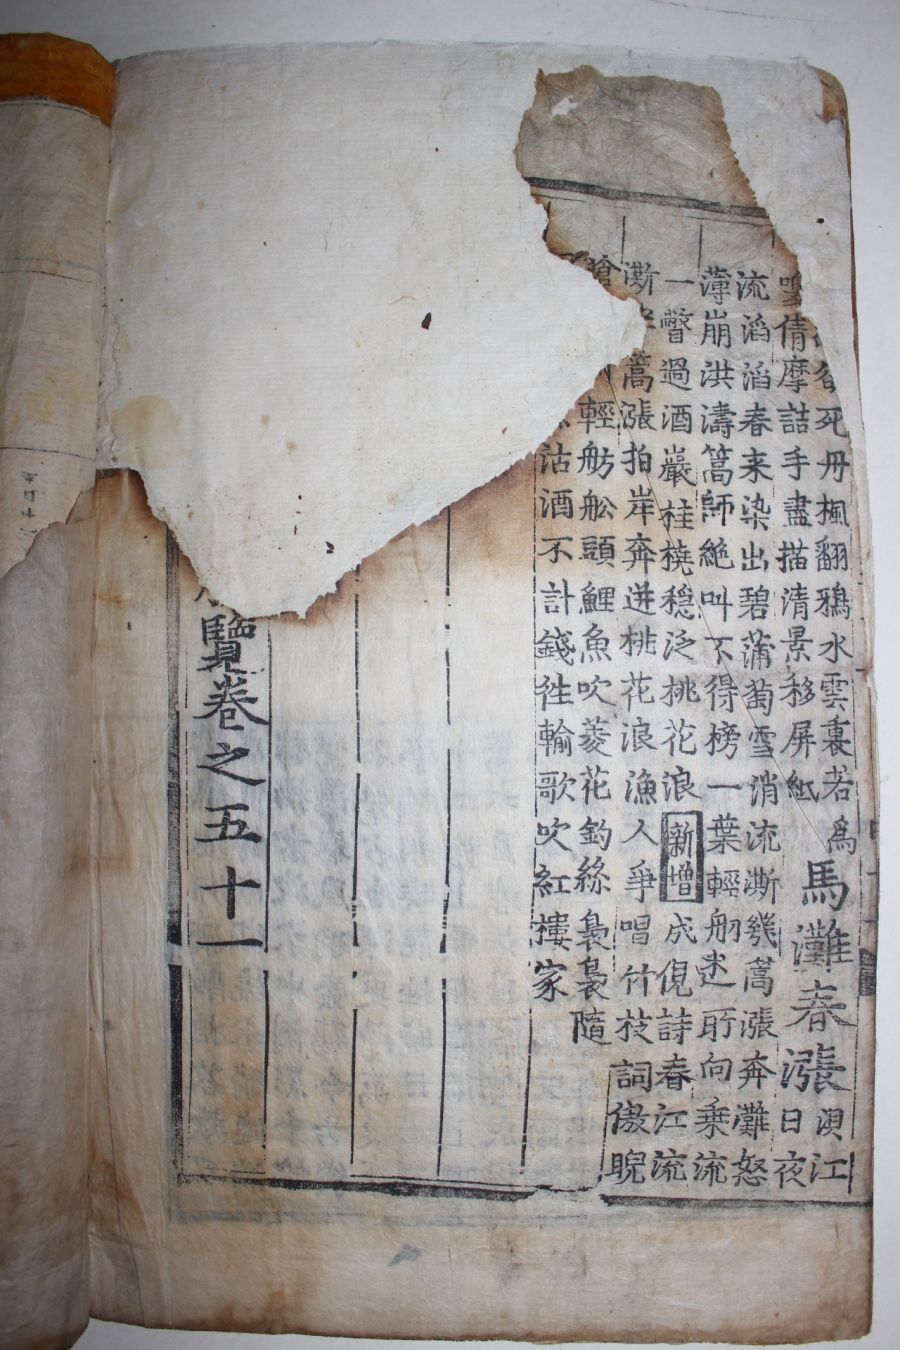 谷死丹楓翻鴉水雲裏若爲
倩摩詰手盡描清景移屏紙
馬灘春漲
浿江
日夜
流滔滔春来染出碧蒲萄雪消流澌幾蒿漲奔灘怒
薄崩洪濤篙師絶叫不得榜一葉輕舠迷所向乗流
一瞥過酒巖桂橈穏泛桃花浪新增成俔詩春江流
澌蒿漲拍岸奔迸桃花浪漁人爭唱竹枝詞傲睨
輕舫舩頭鯉魚吹菱花釣絲裊裊隨
沽酒不計錢徃輸歌吹紅樓家
覽卷之五十一